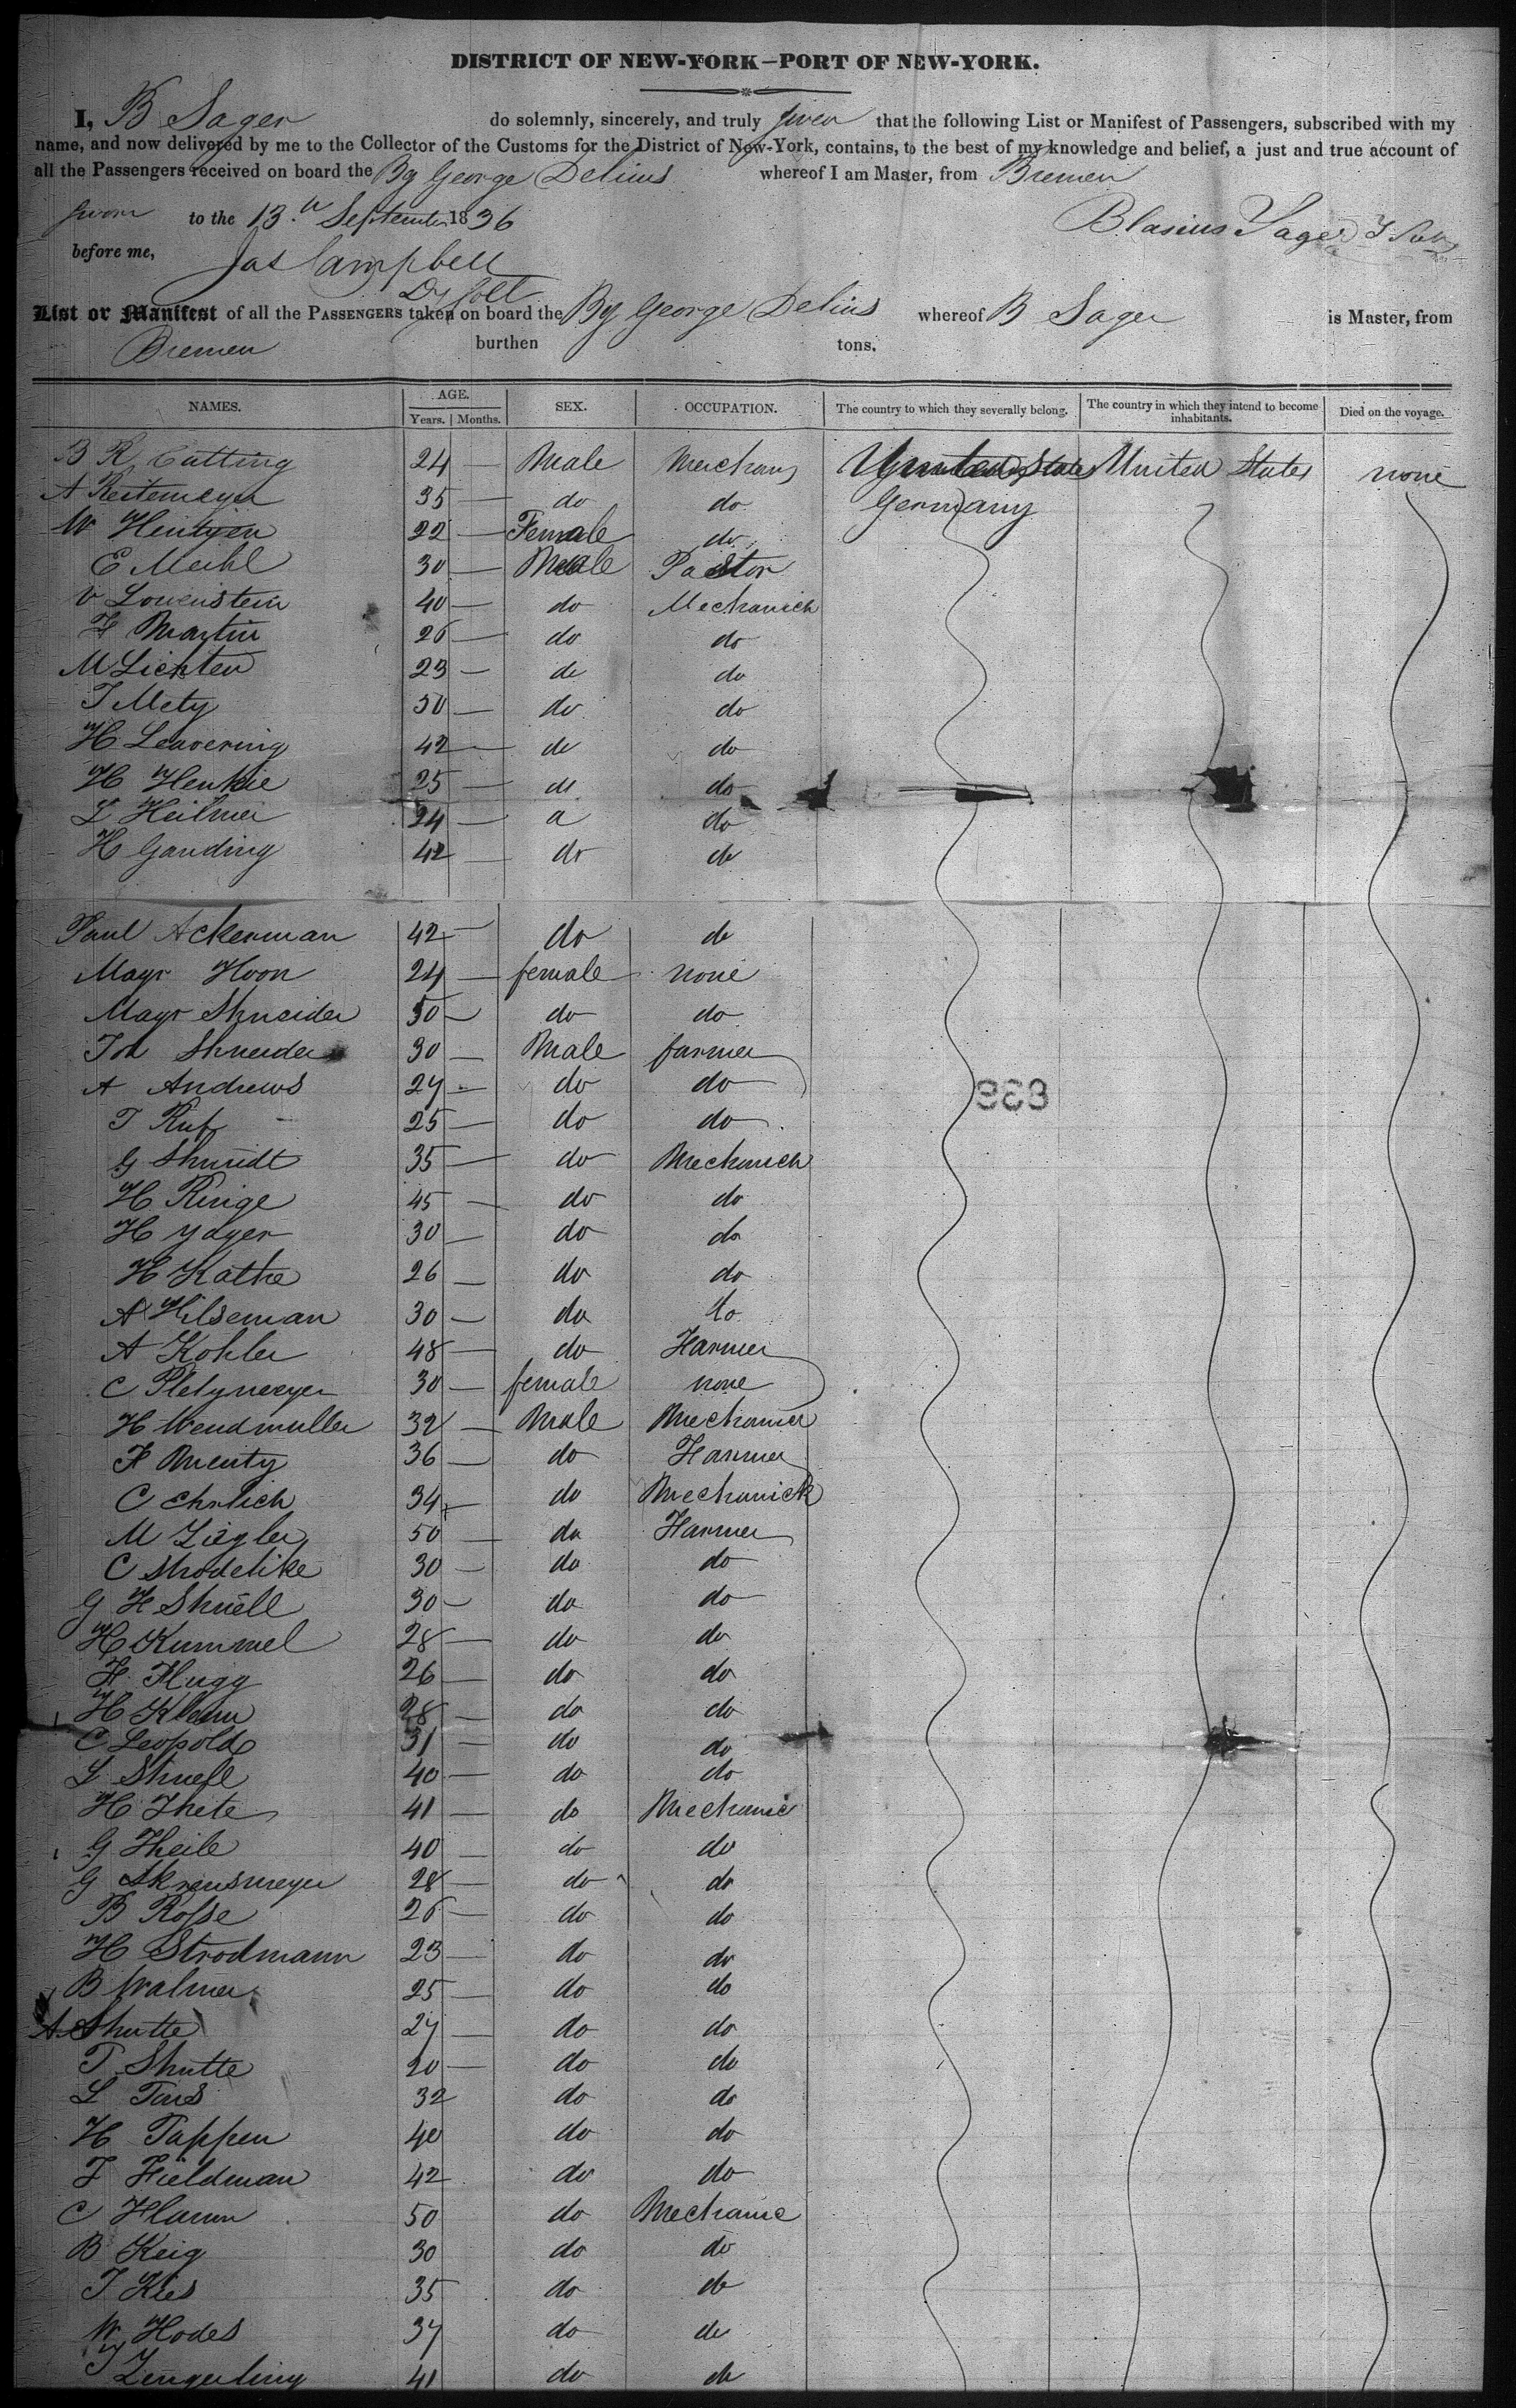 DISTRICT OF NEW-YORK—PORT OF NEW-YORK.
I, B Sager do solemnly, sincerely, and truly swear that the following List or Manifest of Passengers, subscribed with my
name, and now delivered by me to the Collector of the Customs for the District of New-York, contains, to the best of my knowledge and belief, a just and true account of
all the Passengers received on board the Bg George Delius whereof I am Master, from Bremen
sworn to the 13.th September 1836
Blasius Sager
before me, Jas Campbell
Dy Coll
List or Manifest of all the PASSENGERS taken on board the Bg George Delius whereof B Sager is Master, from
Bremen burthen tons.
NAMES. AGE. SEX. OCCUPATION. The country to which they severally belong. The country in which they intend to become inhabitants. Died on the voyage.
Years. Months.
B R Cutting 24 — Male Merchant United States United States none
A Reitemeyer 35 — do do Germany
W Hintjen 22 — Female do
E Meihl 30 — Male Pastor
V Lowenstein 40 — do Mechanick
F Martin 26 — do do
M Lichten 23 — do do
T Mety 50 — do do
H Leavering 42 — do do
H Henkie 25 — do do
L Heilmer 24 — a do
H Ganding 42 — do do
Paul Ackerman 42 — do do
Mayr Hoon 24 — female none
Mayr Shneider 50 — do do
Joh Shneider 30 — Male farmer
A Andrews 27 — do do
T Ruf 25 — do do
G Shmidt 35 — do Mechanick
H Ringe 45 — do do
H Yager 30 — do do
H Kathe 26 — do do
A Hilseman 30 — do do
A Kohler 48 — do Farmer
C Pletymeyer 30 — female none
H Wendmuller 32 — Male Mechanick
F Menty 36 — do Farmer
C Ehrlich 34 — do Mechanick
M Ziegler 50 — do Farmer
C Strodetike 30 — do do
G H Shnell 30 — do do
H Kummel 28 — do do
F Flugg 26 — do do
H Klenn 28 — do do
C Leopold 31 — do do
L Shnell 40 — do do
H Thete 41 — do Mechanic
G Theile 40 — do do
G Skrensmeyer 28 — do do
B Rosse 26 — do do
H Strodmann 23 — do do
B Walmer 25 — do do
A Shutte 27 — do do
T Shutte 20 — do do
L Tons 32 do do
H Tappen 40 do do
F Fieldman 42 do do
C Hamm 50 do Mechanic
B Keig 30 do do
T Kies 35 do do
W Hodes 37 do do
T Zengerling 41 do do